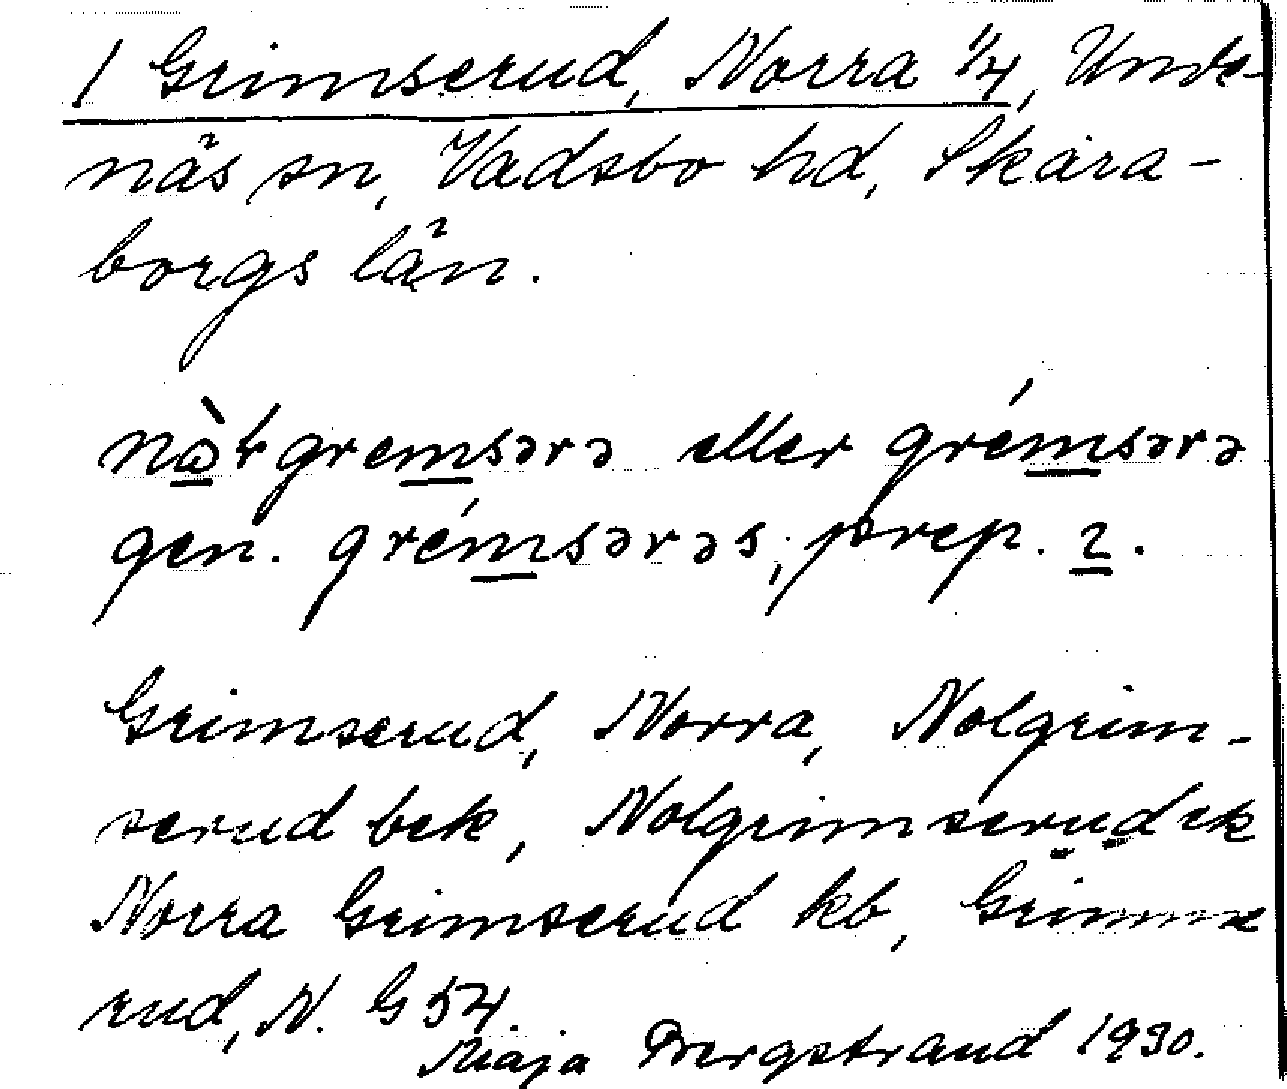 1 Grimserud, Norra 1/4, Unde-
näs sn, Vadsbo hd, Skara-
borgs län.
nàłgremsərə eller grémsərə
gen. grémsərəs, prep. 2.
Grimserud, Norra, Nolgrim-
serud bek, Nolgrimserud ek
Norra Grimserud kb, Grimse
rud, N. G 54.
Maja Bergstrand 1930.